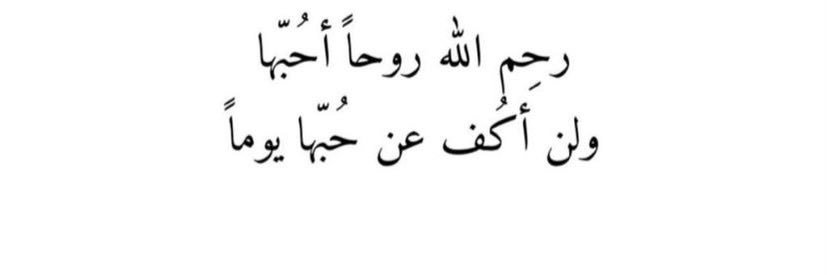 رحِم الله روحاً أُحبّها
ولن أكُف عن حُبّها يوماً